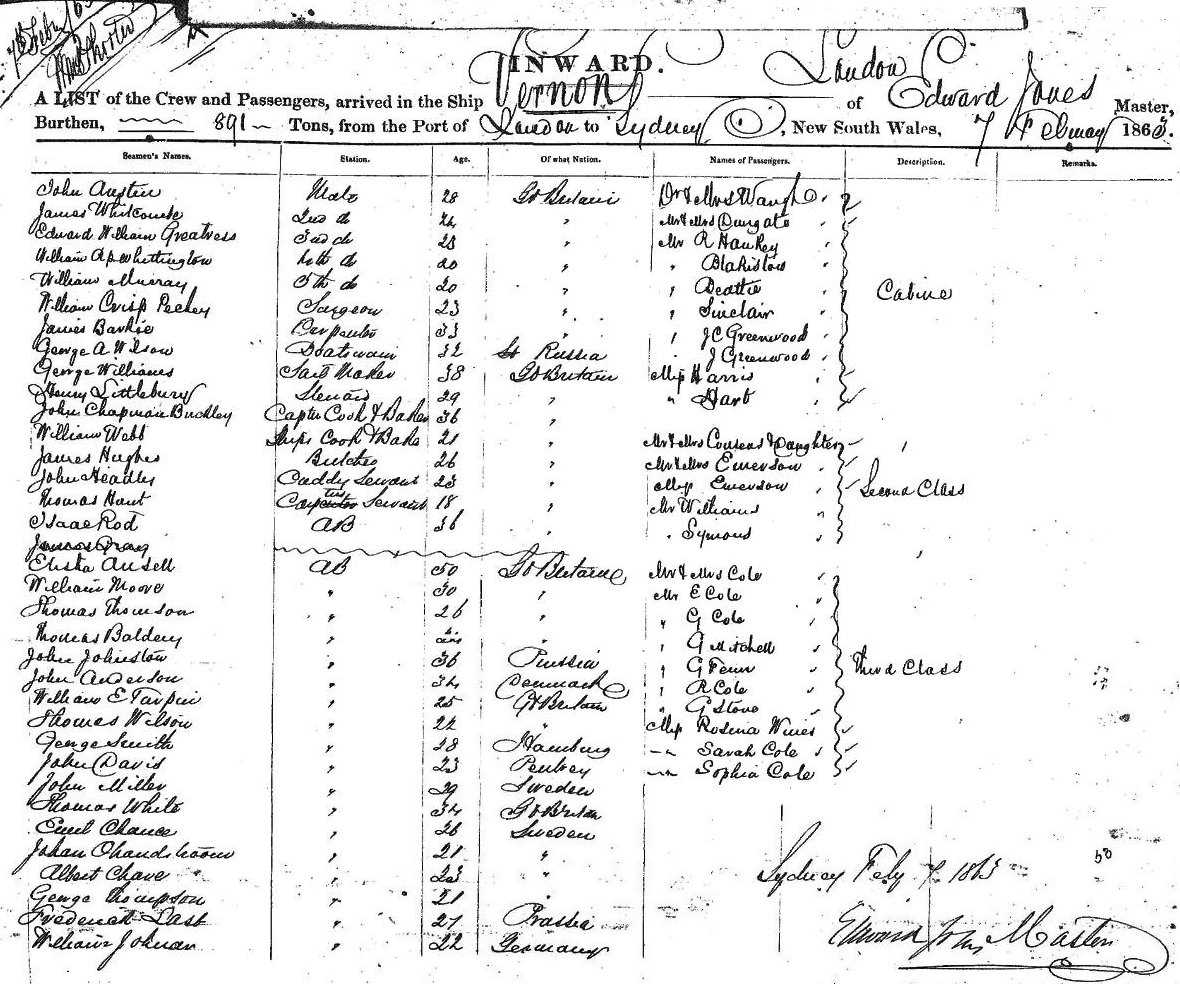 7th Feby 63
INWARD.
A LIST of the Crew and Passengers, arrived in the Ship Vernon London of Edward Jones Master,
Burthen, 891 Tons, from the Port of London to Sydney, New South Wales, 7 February 1863.
Seamen's Names. Station. Age. Of what Nation. Names of Passengers. Description. Remarks.
John Austin Mate 28 Gt Britain Dr & Mrs Waugh
James Whitcombe 2nd do 24 " Mr & Mrs Dungate
Edward William Greatress 3rd do 28 " Mr R Hankey
William A p Whittington 4th do 20 " " Blakiston
William Murray 5th do 20 " " Beattie Cabine
William Crisp Peckey Surgeon 23 " " Sinclair
James Barkie Carpenter 33 " " J C Greenwood
George A Wilson Boatswain 32 St Russia " J Greenwood
George Williams Sail Maker 38 Gt Britain Miss Harris
Henry Littlebury Steward 29 " " Hart
John Chapman Buckley Capts Cook & Baker 36 "
William Webb Ships Cook & Bake 21 " Mr & Mrs Cousens & Daughter
James Hughes Butcher 26 " Mr & Mrs Emerson
John Headley Cuddy Servant 23 " Miss Emerson Second Class
Thomas Hant Servant 18 " Mr Williams
Isaac Rod AB 36 " " Symons
James Gray
Elisha Ansell AB 50 Gt Britain Mr & Mrs Cole
William Moore " 30 " Mr E Cole
Thomas Thomson " 26 " " G Cole
Thomas Baldery " " " G Mitchell
John Johnston " 36 Prussia " G Fenn Third Class
John Anderson " 34 Denmark " R Cole
William E Tarpin " 25 Gt Britain " G Stone
Thomas Wilson " 22 " Miss Rosina Wines
George Smith " 28 Hamburg " Sarah Cole
John Davis " 23 " Sophia Cole
John Miller " 29 Sweden
Thomas White " 34 Gt Britain
Emil Chance " 26 Sweden
Johan " 21 "
Albert Chave " 23 "
George Thompson " 21
Frederick Last " 27 Prassia
William Johnan " 22 Germany
Sydney Feby 7 1863
50
Edward Jones Master